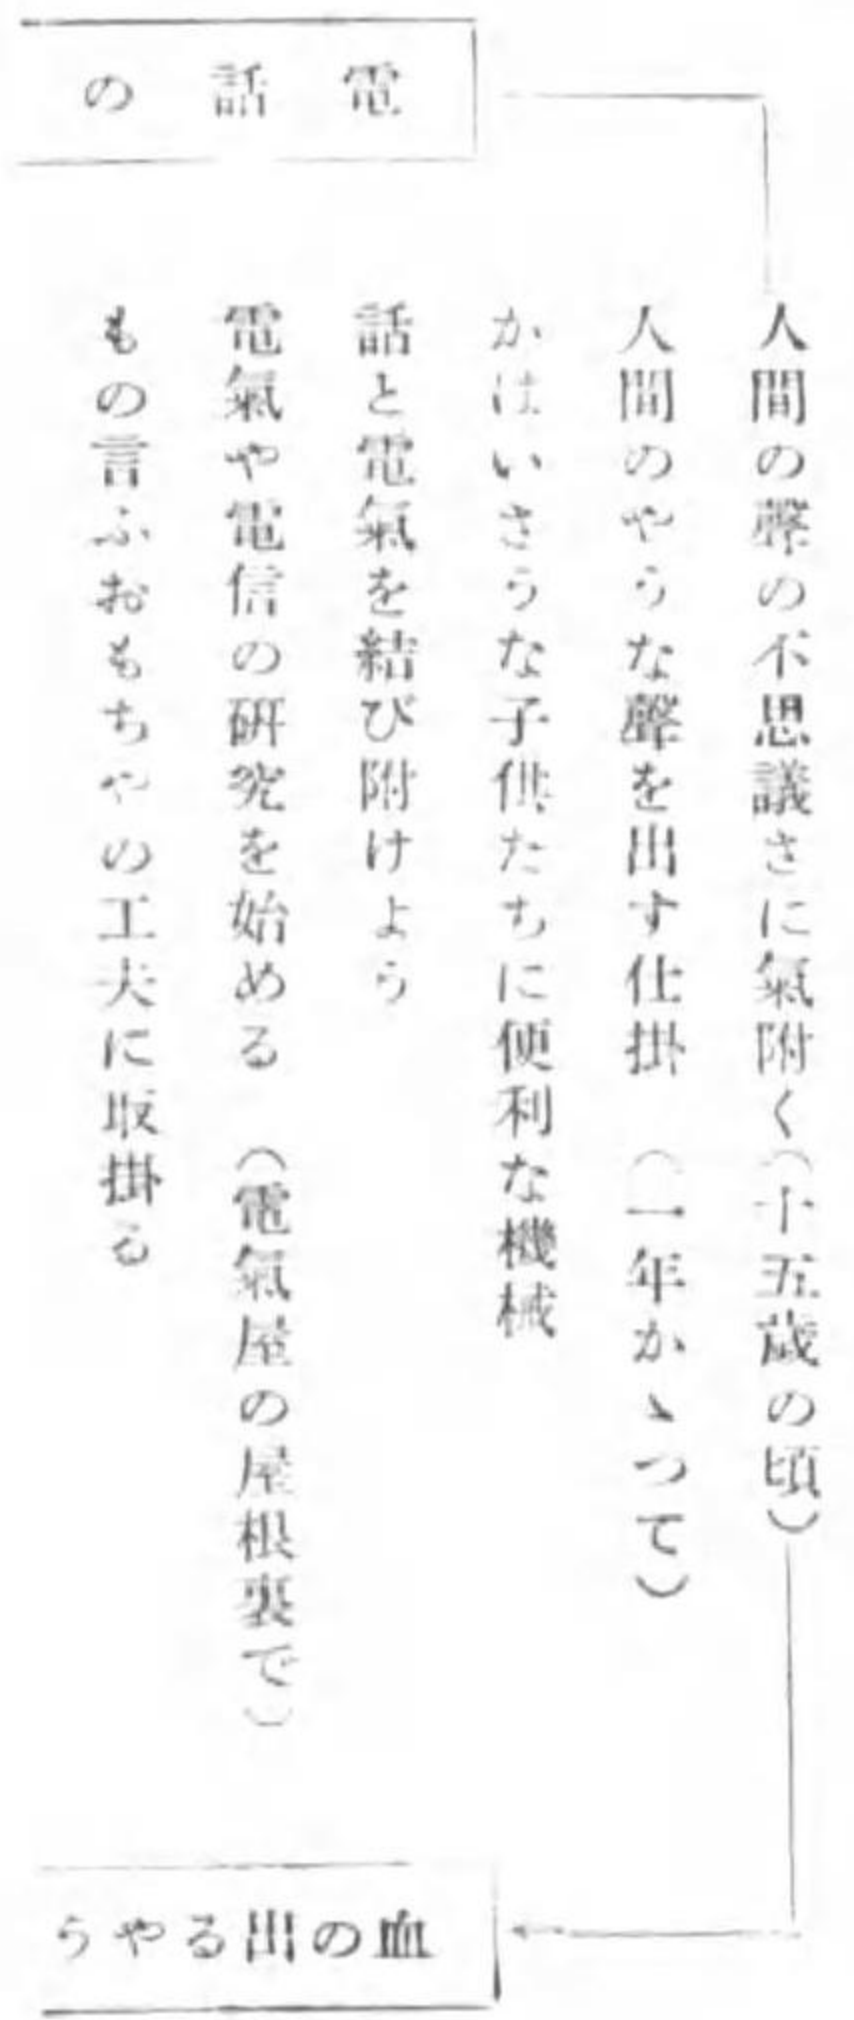 電話の
人間の聲の不思議さに氣附く(十五歳の頃)
人間のやうな聲を出す仕掛 (一年かゝつて)
かはいさうな子供たちに便利な機械
話と電氣を結び附けよう
電氣や電信の研究を始める (電氣屋の屋根裏で)
もの言ふおもちやの工夫に取掛る
血の出るやう